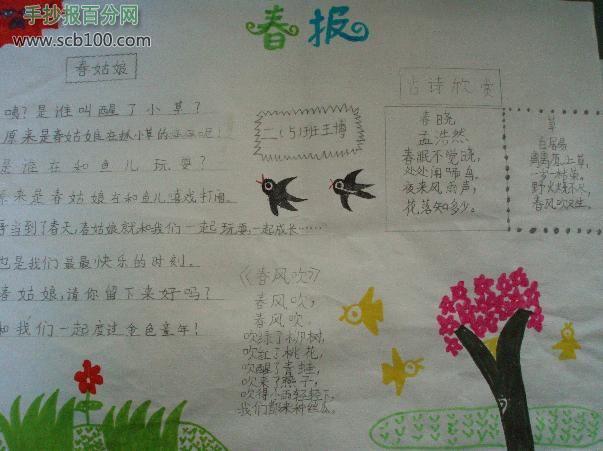 手抄报百分网
www.scb100.com
春报
春姑娘
咦?是谁叫醒了小草?
原来是春姑娘在
是谁在和鱼儿玩耍?
原来是春姑娘在和鱼儿嬉戏打闹。
每当到了春天,春姑娘就和我们一起玩耍一起成长……
也是我们最最快乐的时刻。
春姑娘,请你留下来好吗?
和我们一起度过金色童年!
二(5)班王博
古诗欣赏
春晓
孟浩然
春眠不觉晓,
处处闻啼鸟,
夜来风雨声,
花落知多少。
草
白居易
离离原上草,
一岁一枯荣。
野火烧不尽,
春风吹又生。
《春风吹》
春风吹,
春风吹,
吹绿了柳树,
吹红了桃花,
吹醒了青蛙,
吹来了燕子,
吹得小雨轻轻下,
我们都来种丝瓜。